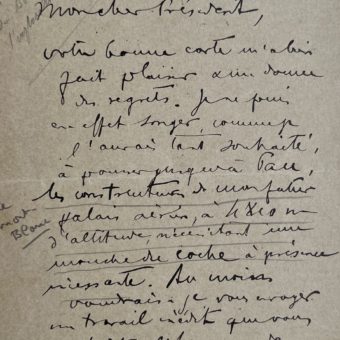 Mon cher Président,
votre bonne carte m'a bien
fait plaisir a me donner
des regrets. Je ne puis
en effet songer, comme je
l'aurais tant souhaité,
à pousser jusqu'à Pau,
les constructeurs de mon futur
palais aérien, à 4810 m
d'altitude, nécessitant une
mouche du coche à présence
incessante. Au moins
voudrais-je vous envoyer
un travail inédit que vous